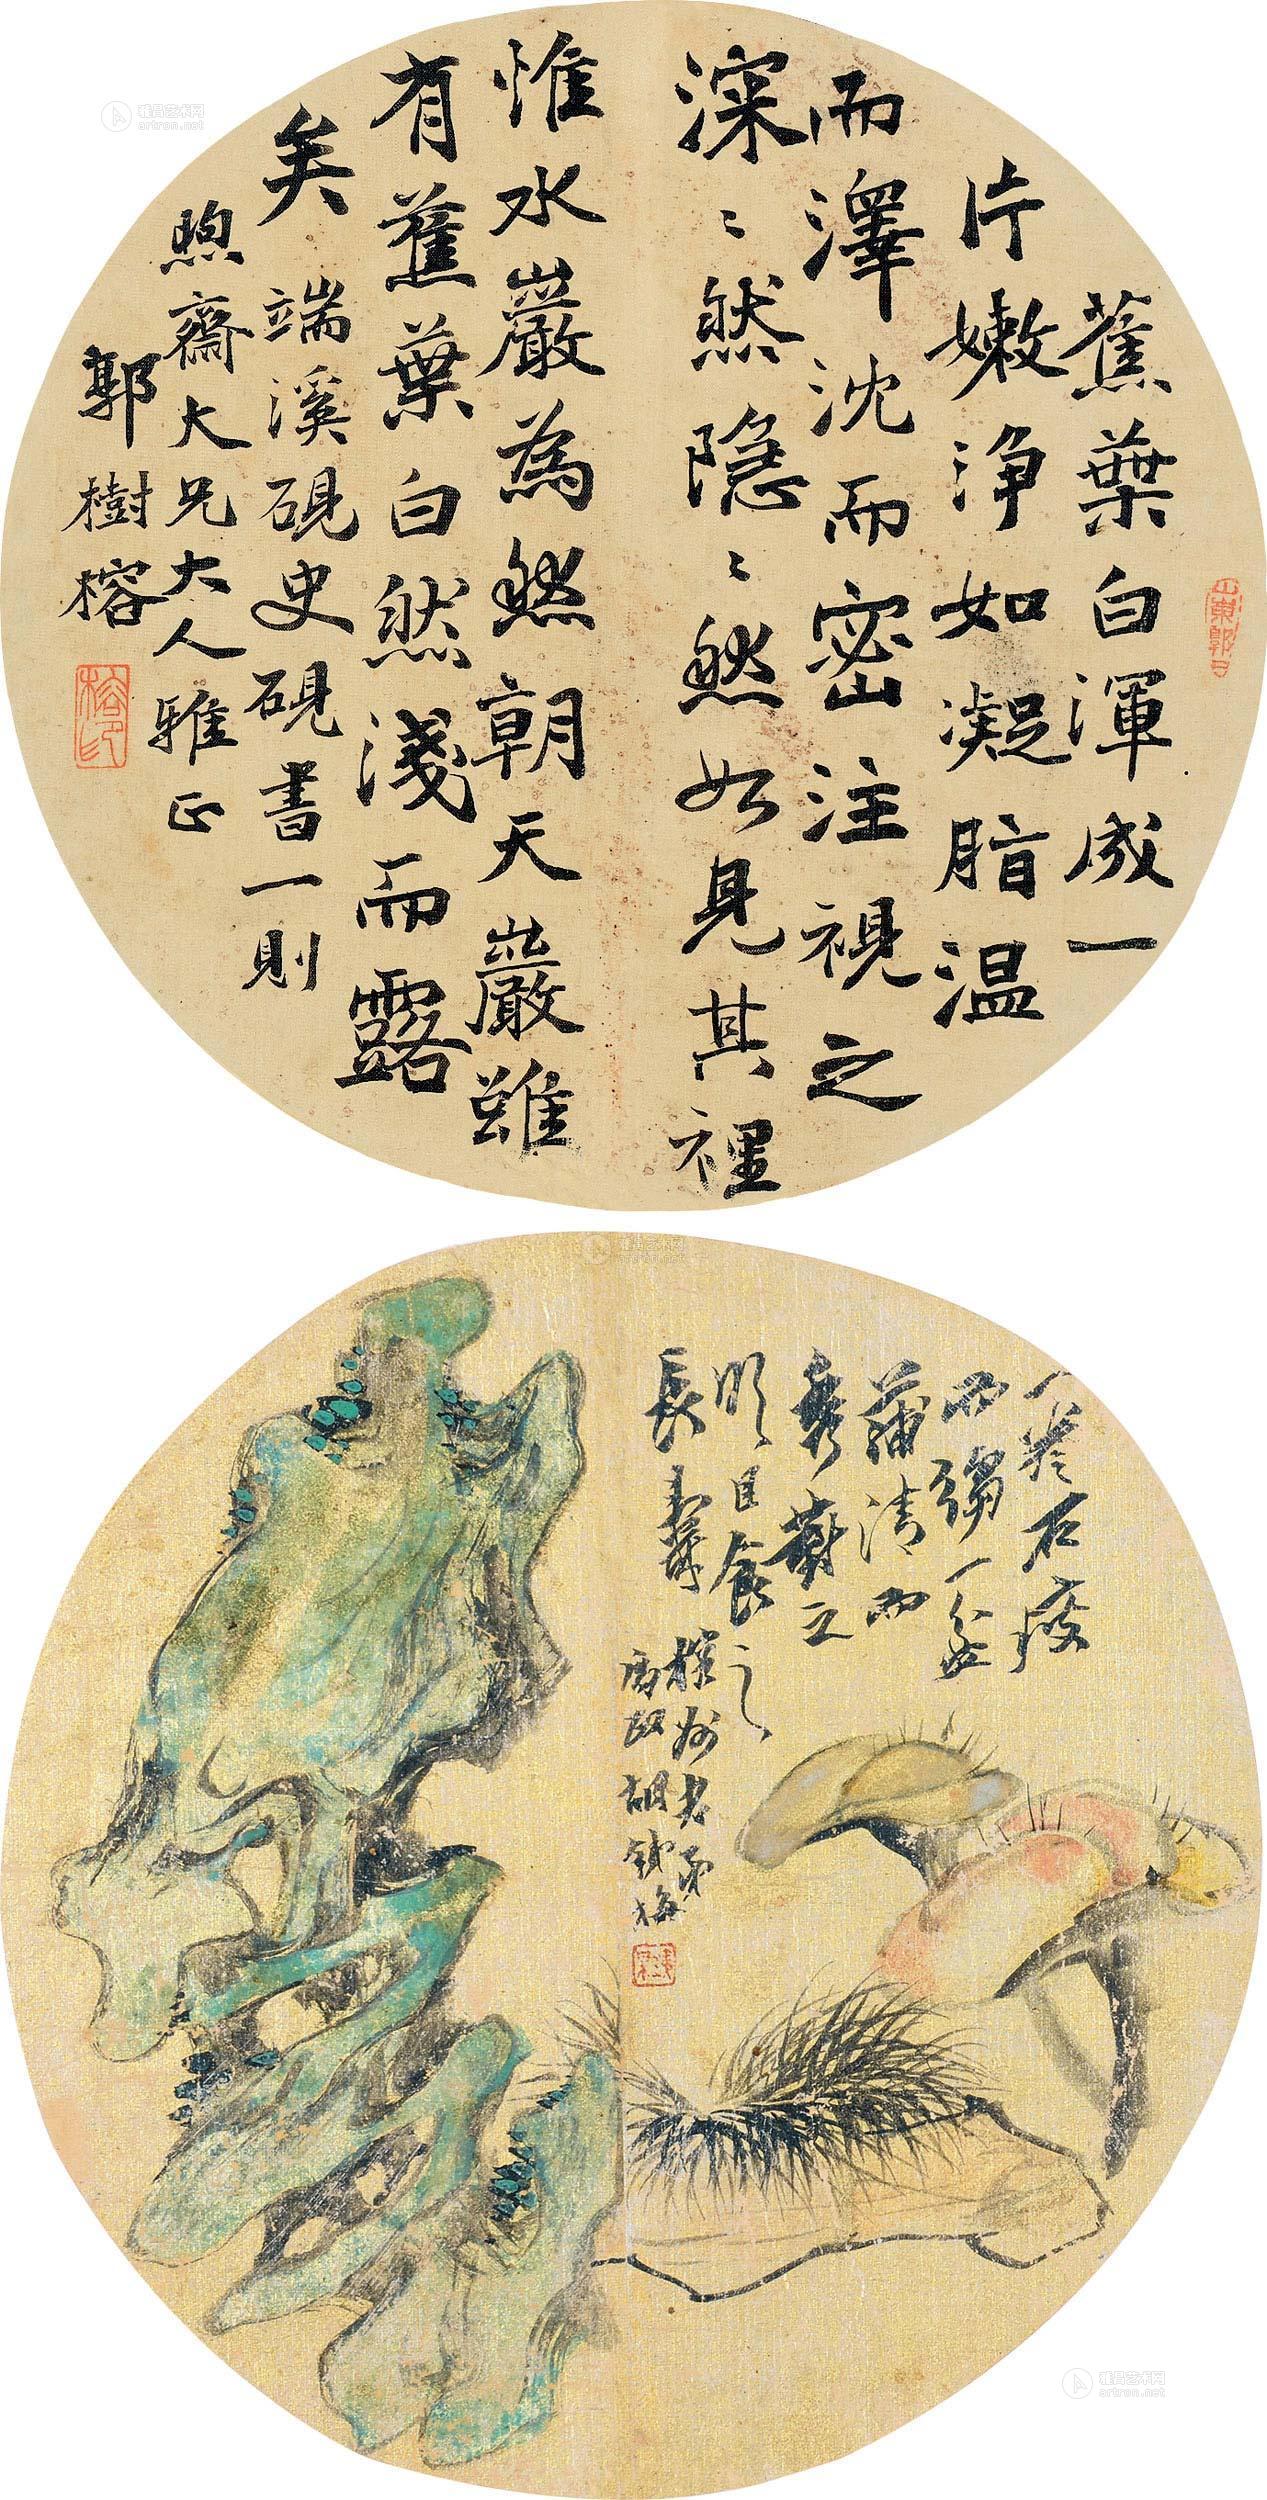 蕉葉白渾成一
片嫩淨如凝脂温
而澤沈而密注視之
深〻然隱〻然如見其裡
惟水巖為然朝天巖雖
有蕉葉白然淺而露
矣 端溪硯史硯書一則
煦齋大兄大人雅正
郭樹榕
榕印
一拳石瘦
而縐一盆
蒲清而
秀對之
明目食之
長壽
胡鐵梅
雅昌艺术网
artron.net
雅昌艺术网
artron.net
雅昌艺术网
artron.net